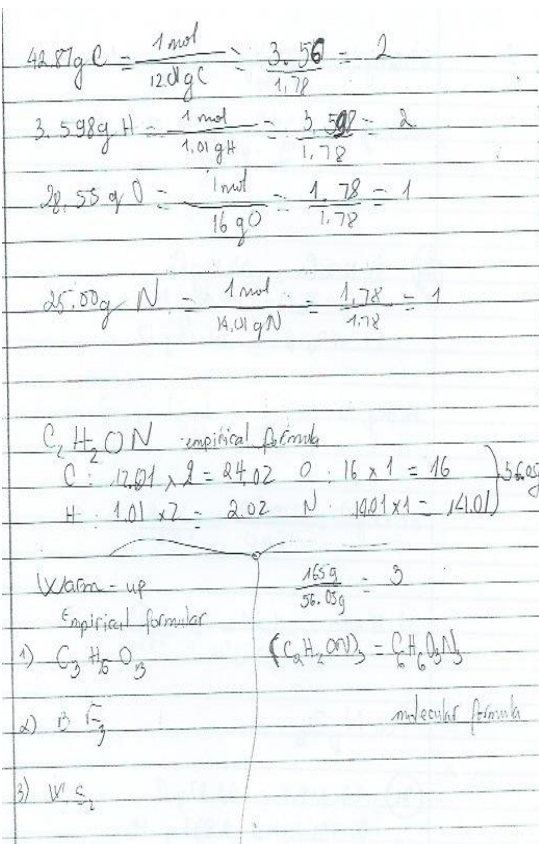 42.87g C = 1 mol / 12.01g C = 3.56 / 1.78 = 2
3.598g H = 1 mol / 1.01 g H = 3.598 / 1.78 = 2
28.55 g O = 1 mol / 16 gO = 1.78 / 1.78 = 1
25.00g N = 1 mol / 14.01 gN = 1.78 / 1.78 = 1
C2H2ON empirical formula
C: 12.01 x 2 = 24.02 O: 16 x 1 = 16 ) 56.05g
H: 1.01 x 2 = 2.02 N: 14.01 x 1 = 14.01
Warm-up
Empirical formular
1) C3 H5 O3
2) B F3
3) W S2
165g / 56.05g = 3
(C2H2ON)3 = C6H6O3N3
molecular formula